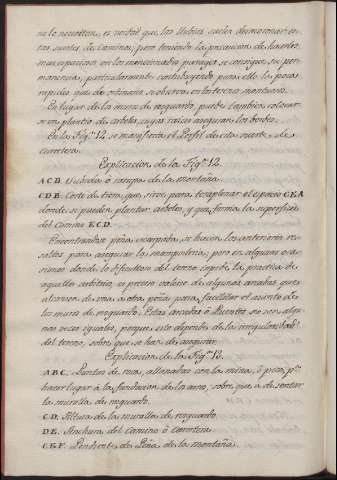 no lo necesiten, es verdad que las lluvias suelen desmoronar es-
tas suertes de caminos; pero teniendo la precaucion de hacerlos
mas espaciosos en los mencionados parages se consigue su per-
manencia, particularmente contribuyendo para ello la poca
rapidez que de ordinario se observa en los terrenos montuosos.
En lugar de los muros de resguardo, puede tambien colocar-
se un plantio de arboles, cuyas raices aseguran los bordes.
En la Fig.ª 12 se manifiesta el Perfil de esta suerte de
carretera.
Explicacion de la Fig.ª 12.
A.C.B. Subida ó rampa de la montaña.
C.D.E. Corte de tierra, que sirve para terraplenar el espacio C.E.A
donde se pueden plantar arboles, y que forma la superficie
del camino E.C.D.
Encontrandose peña escarpada, se hacen los anteriores re-
saltos para asegurar la mamposteria; pero en algunas oca-
siones donde lo dificultoso del terreno impide la practica de
aquellos arbitrios, es preciso valerse de algunas arcadas que
atraviesen de una a otra peña para facilitar el asiento de
los muros de resguardo. Estas arcadas ó Puentes no son algu-
nas veces iguales, porque esto depende de la irregularidad
del terreno, sobre que se han de asegurar.
Explicacion de la Fig.ª 12.
A.B.C. Puntas de roca, allanadas con la mina, ó pico, p.ª
hacer lugar á la fundacion de los arcos, sobre que se ha de sentar
la muralla de resguardo.
C.D. Altura de la muralla de resguardo.
D.E. Anchura del Camino ó Carretera.
C.E.F. Pendiente de Peña de la montaña.